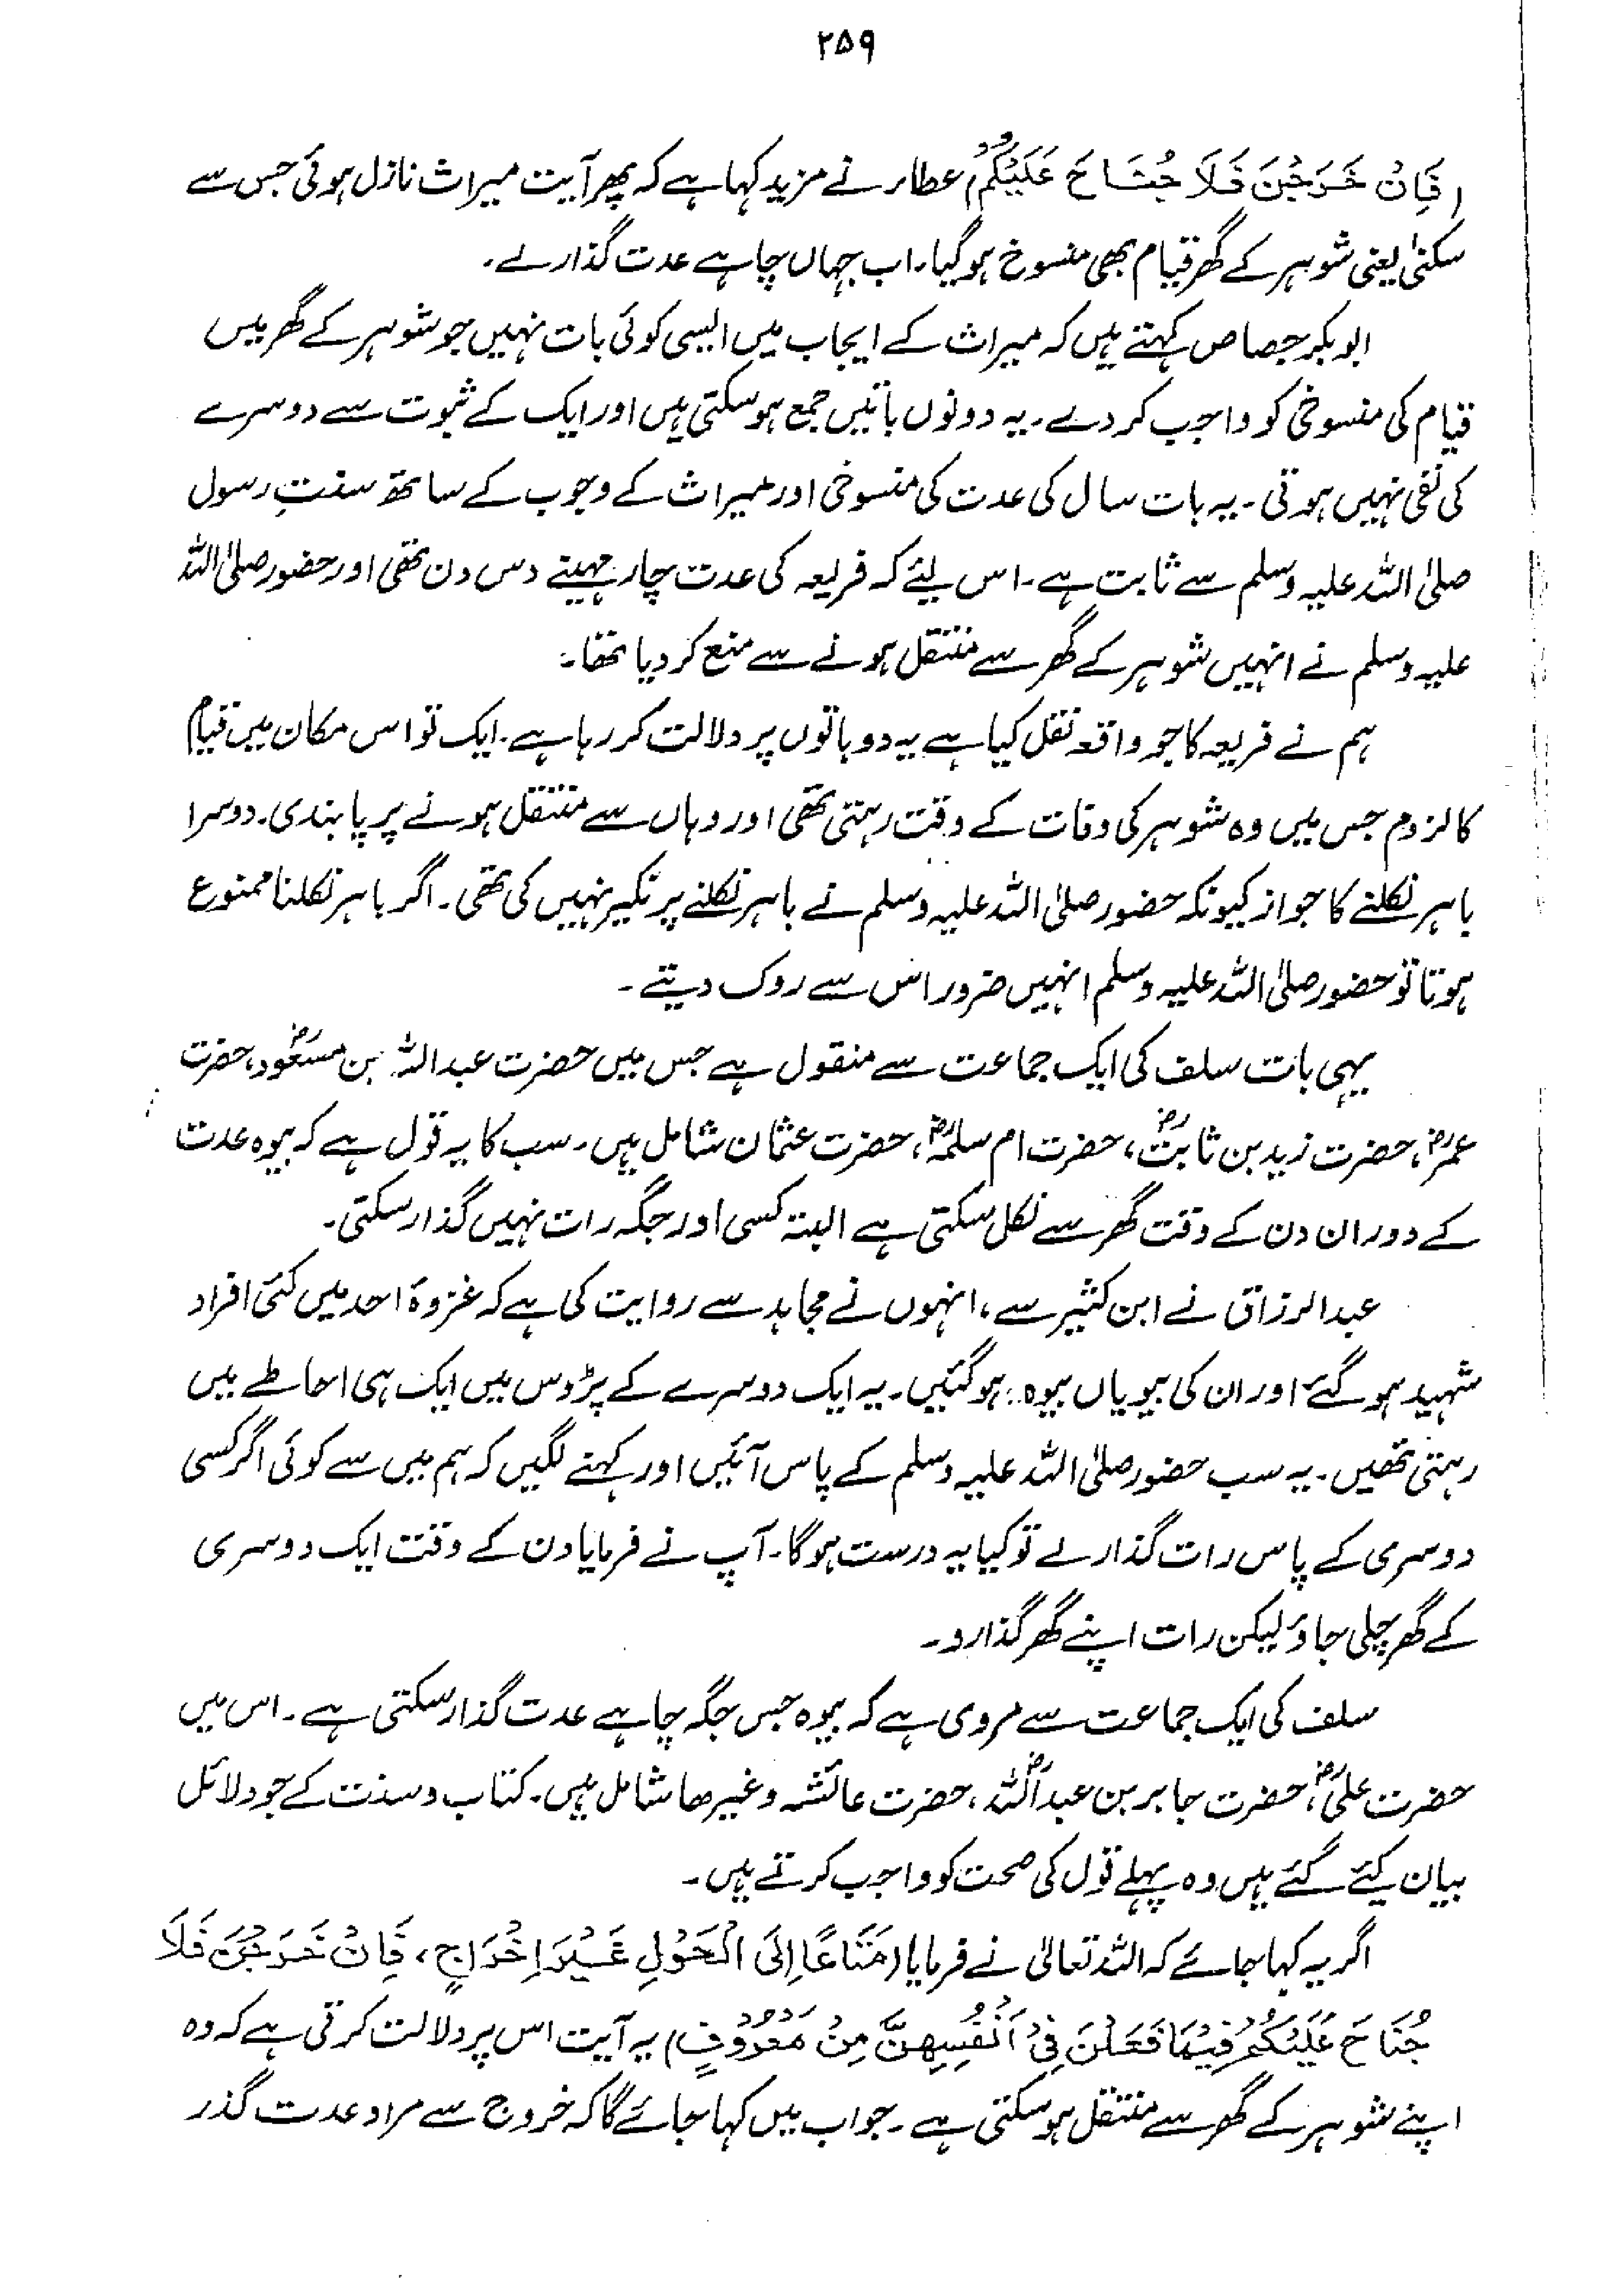 ۲۵۹
(فَاِنْ خَرَجْنَ فَلَا جُنَاحَ عَلَيْكُمْ عطاء نے مزید کہا ہے کہ پھر آیت میراث نازل ہوئی جس سے
سکنیٰ یعنی شوہر کے گھر قیام بھی منسوخ ہو گیا۔ اب جہاں چاہے عدت گذار لے۔
ابوبکر جصاص کہتے ہیں کہ میراث کے ایجاب میں ایسی کوئی بات نہیں جو شوہر کے گھر میں
قیام کی منسوخی کو واجب کر دے۔ یہ دونوں باتیں جمع ہو سکتی ہیں اور ایک کے ثبوت سے دوسرے
کی نفی نہیں ہوتی۔ یہ بات سال کی عدت کی منسوخی اور میراث کے وجوب کے ساتھ سنتِ رسول
صلی اللہ علیہ وسلم سے ثابت ہے۔ اس لیئے کہ فریعہ کی عدت چار مہینے دس دن تھی اور حضور صلی اللہ
علیہ وسلم نے انہیں شوہر کے گھر سے منتقل ہونے سے منع کر دیا تھا۔
ہم نے فریعہ کا جو واقعہ نقل کیا ہے یہ دو باتوں پر دلالت کر رہا ہے۔ ایک تو اس مکان میں قیام
کا لزوم جس میں وہ شوہر کی وفات کے وقت رہتی تھی اور وہاں سے منتقل ہونے پر پابندی۔ دوسرا
باہر نکلنے کا جواز کیونکہ حضور صلی اللہ علیہ وسلم نے باہر نکلنے پر نکیر نہیں کی تھی۔ اگر باہر نکلنا ممنوع
ہوتا تو حضور صلی اللہ علیہ وسلم انہیں ضرور اس سے روک دیتے۔
یہی بات سلف کی ایک جماعت سے منقول ہے جس میں حضرت عبداللہ بن مسعودؓ، حضرت
عمرؓ، حضرت زید بن ثابتؓ، حضرت ام سلمہؓ، حضرت عثمان شامل ہیں۔ سب کا یہ قول ہے کہ بیوہ عدت
کے دوران دن کے وقت گھر سے نکل سکتی ہے البتہ کسی اور جگہ رات نہیں گذار سکتی۔
عبدالرزاق نے ابن کثیر سے، انہوں نے مجاہد سے روایت کی ہے کہ غزوۂ احد میں کئی افراد
شہید ہو گئے اور ان کی بیویاں بیوہ ہو گئیں۔ یہ ایک دوسرے کے پڑوس میں ایک ہی احاطے میں
رہتی تھیں۔ یہ سب حضور صلی اللہ علیہ وسلم کے پاس آئیں اور کہنے لگیں کہ ہم میں سے کوئی اگر کسی
دوسری کے پاس رات گذار لے تو کیا یہ درست ہوگا۔ آپ نے فرمایا دن کے وقت ایک دوسری
کے گھر چلی جاؤ لیکن رات اپنے گھر گذارو۔
سلف کی ایک جماعت سے مروی ہے کہ بیوہ جس جگہ چاہے عدت گذار سکتی ہے۔ اس میں
حضرت علیؓ، حضرت جابر بن عبداللہؓ، حضرت عائشہ وغیرھا شامل ہیں۔ کتاب و سنت کے جو دلائل
بیان کیئے گئے ہیں وہ پہلے قول کی صحت کو واجب کرتے ہیں۔
اگر یہ کہا جائے کہ اللہ تعالیٰ نے فرمایا (مَتَاعًا اِلَى الْحَوْلِ غَيْرَ اِخْرَاجٍ، فَاِنْ خَرَجْنَ فَلَا
جُنَاحَ عَلَيْكُمْ فِيْمَا فَعَلْنَ فِيْ اَنْفُسِهِنَّ مِنْ مَعْرُوْفٍ) یہ آیت اس پر دلالت کرتی ہے کہ وہ
اپنے شوہر کے گھر سے منتقل ہو سکتی ہے۔ جواب میں کہا جائے گا کہ خروج سے مراد عدت گذر